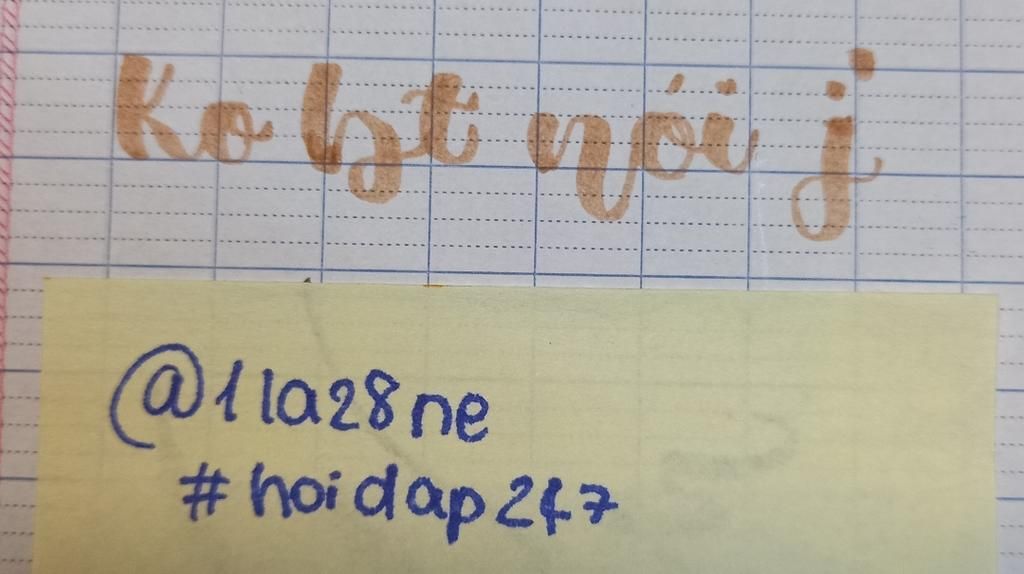 Ko bt nói j
@1la28ne
#hoidap247